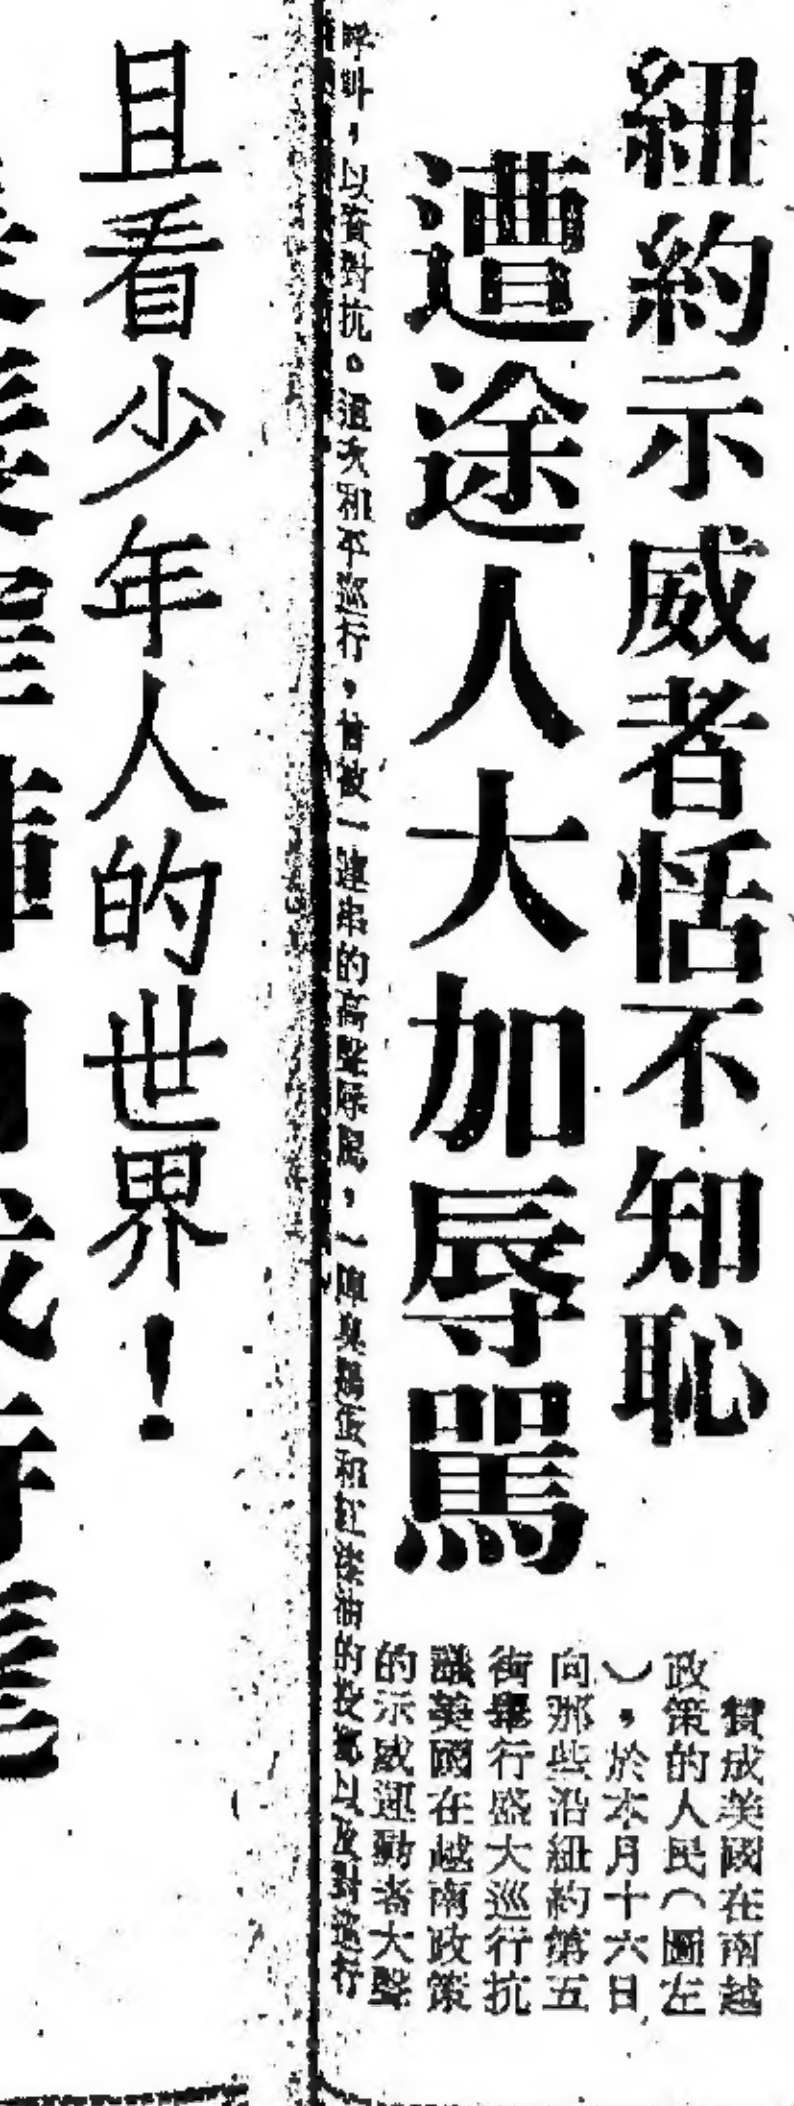 紐約示威者恬不知恥
遭途人大加辱罵
贊成美國在南越
政策的人民（圖左
），於本月十六日
向那些沿紐約第五
街舉行盛大巡行抗
議美國在越南政策
的示威運動者大聲
呼叫，以資對抗。這次和平巡行，曾被一連串的高聲辱罵，一陣臭鷄蛋和紅漆油的投擲以及對遊行
且看少年人的世界！